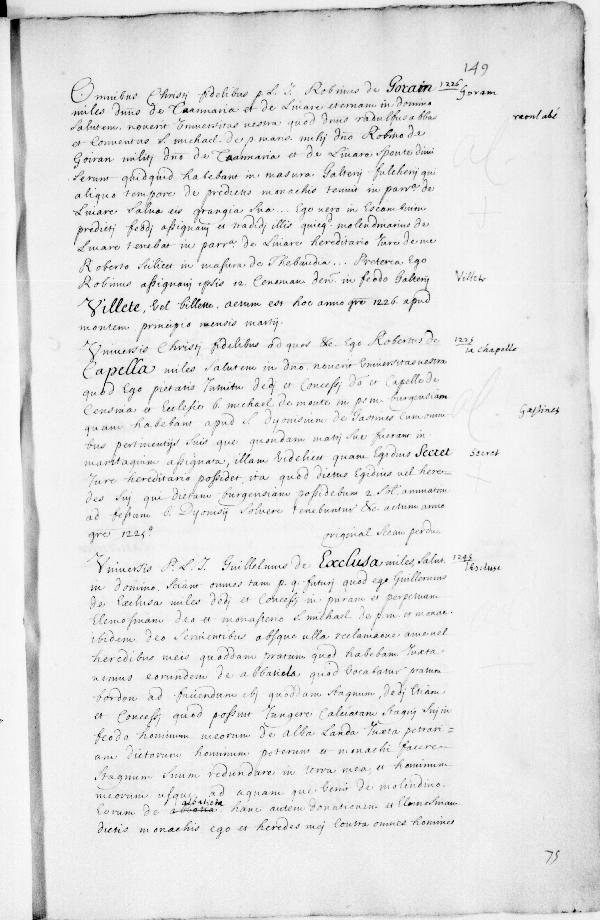 149
Omnibus Christi fidelibus p. L. J. Robinus de Gorain 1226
Goram
miles dnus de Taamaria et de Livare eternam in domino
salutem. noverit Universitas vestra quod dnus radulfus abbas raoul abé
et Conventus S. michael. de p. maris. mihj dno Robino de
Goiran militj dno de Taamaria et de Livaro sponte dimi
serunt quidquid habebant in masura Galterij fulcherij qui
aliquo tempore de predictis monachis tenuit in parra. de
Livare salva eis grangia sua... Ego vero in Escambium
predictj feodj assignavj et tradidj illis quicq. molendinarius de
Livare tenebat in parra. de Livare hereditario Jure de me
Roberto scilicet in masura de Thebaudia... Preterea Ego
Robinus assignavj ipsis 12. Cenoman. den. in feodo Galterij
Villete
Villete, vel billete. actum est hoc anno gre 1226. apud
montem principio mensis martij.
Universis Christj fidelibus ad quos &c. Ego Robertus de 1225
la chapelle
Capella miles salutem in dno. noverit Universitas vestra
quod Ego pietatis Intuitu dedj et Concessj do et Capelle de
Censiva et Ecclesie b. michael de monte in p.m. burgensiam
quam habebant apud S. Dyonisium de Gastines Cum omni Gastines
bus pertinentijs suis que quondam matrj sue fuerant in
maritagium assignata, illam videlicet quam Egidius Secret Secret
Jure hereditario possidet, ita quod dictus Egidius vel here-
des suj qui dictam burgensiam possidebunt 2. sol. annuatim
ad festum b. Dyonisij solvere tenebuntur &c actum anno
gre 1225.
original sceau perdu
Universis P. L. J. Guillelmus de Exclusa miles, salut. 1245
l'Ecluse
in domino. sciant omnes tam p. q. futurj quod ego Guillermus
de Exclusa miles dedj et Concessj in puram et perpetuam
Elemosinam deo et monasterio S. michael de p. m. et monac.
ibidem deo servientibus absque ulla reclamaone a me vel
heredibus meis quoddam pratum quod habebam Juxta
nemus eorundem de abbatiola quod vocabatur pratum
bordon ad faciendum ibj quoddam stagnum, dedj Etiam
et Concessj quod possint Jungere Calceiam stagnj suj in
feodo hominum meorum de Alba Landa Juxta petrari-
am dictorum hominum poterunt et monachi facere
stagnum suum redundare in terra mea, et hominum
meorum usque ad aquam que venit de molendino
Eorum de abbatiola. hanc autem donationem et Elemosinam
dictis monachis ego et heredes mej Contra omnes homines
75